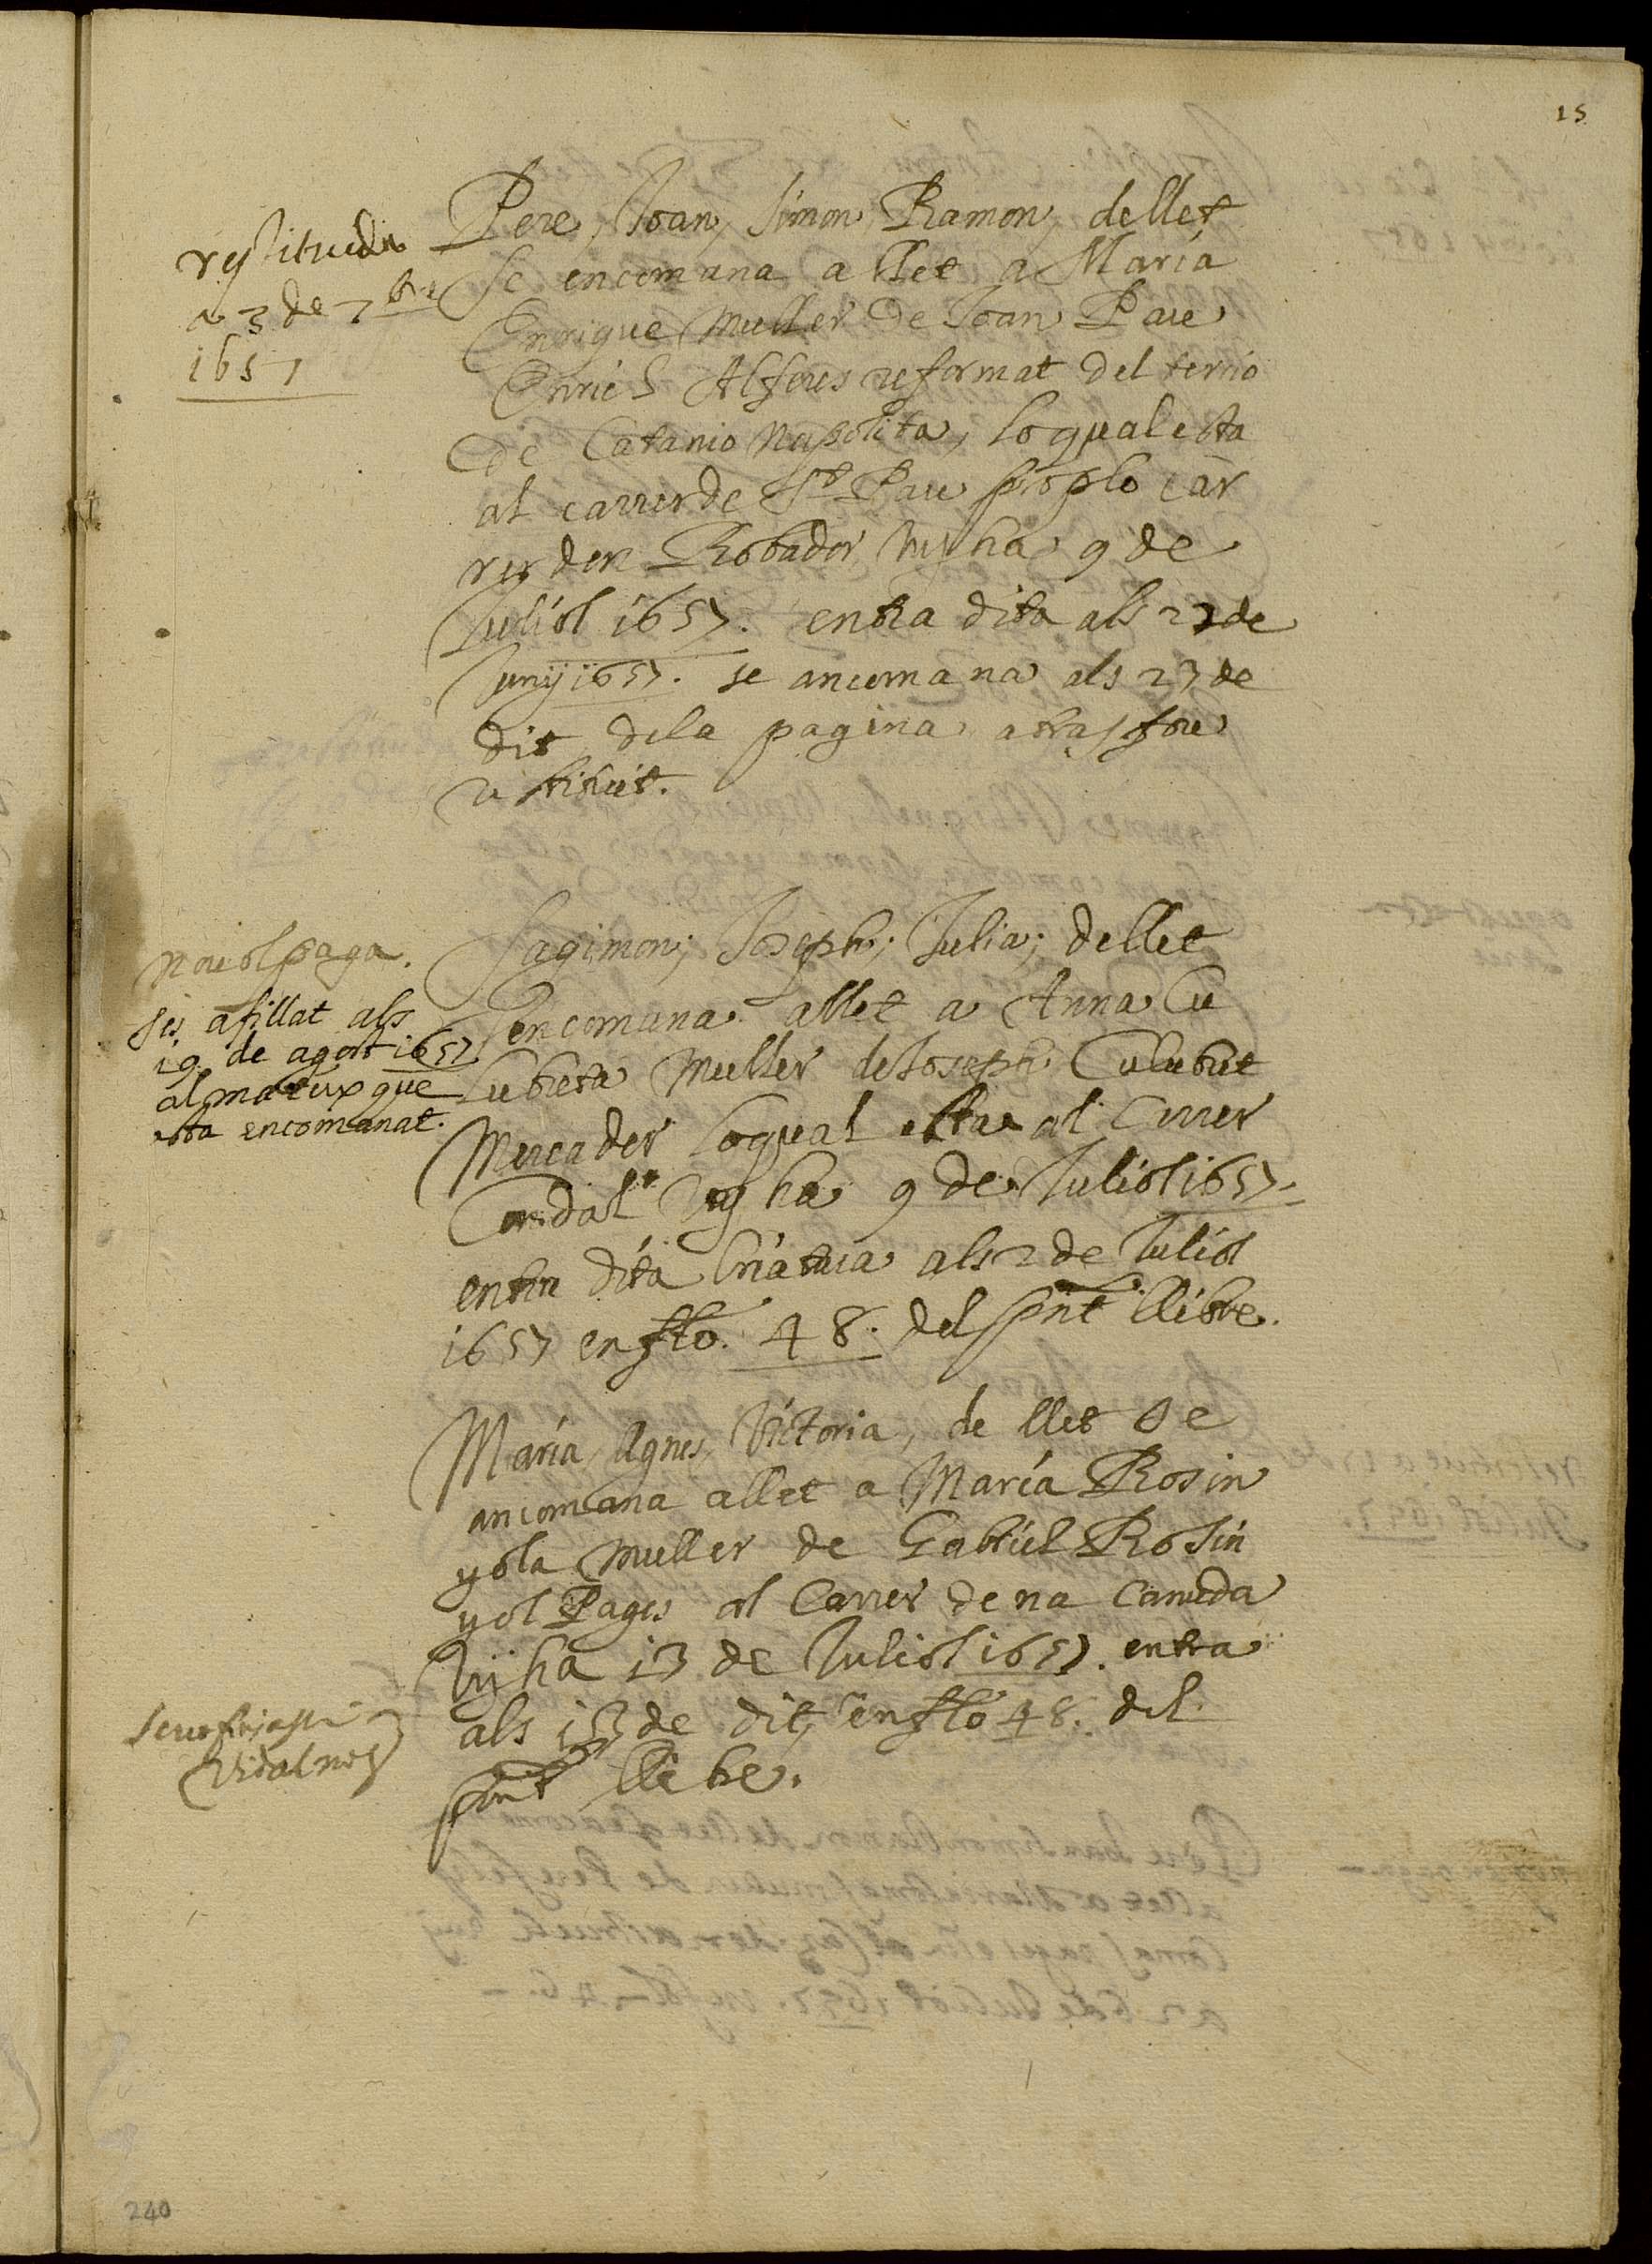 15
restituida
a 3 de 7bre
1657
Pere, Joan, Simon, Ramon, dellet
Se encomana a llet a Maria
Enrique Muller De Joan Pau
Enrich Alferes reformat del tercio
De Catanio Napolita, lo qual esta
al carrer de St Pau prop lo car
rer den Robador, vuy ha 9 de
Juliol 1657. entra dita als 23 de
Juny 1657. se ancomana als 23 de
dit dela pagina atras fou
restituit.
no vol paga.
ses afillat als
19 de agost 1657
al mateix que
esta encomanat.
Sagimon; Joseph; Julia; dellet
Sencomana allet a Anna Cu
Cubreta Muller de Joseph Culubret
Mercader loqual esta al Carrer
Condal vuy ha 9 de Juliol 1657.
entra dita Criatura als 2 de Juliol
1657 en ffo. 48. del pnt llibre.
Maria, Agnes, Victoria, de llet Se
ancomana allet a Maria Rosin
yola Muller de Gabriel Rosin
yol Pages al Carrer de na Canuda
Vuy ha 13 de Juliol 1657. entra
als 13 de dit, en ffo 48. del
pnt llibre.
Vidal
240